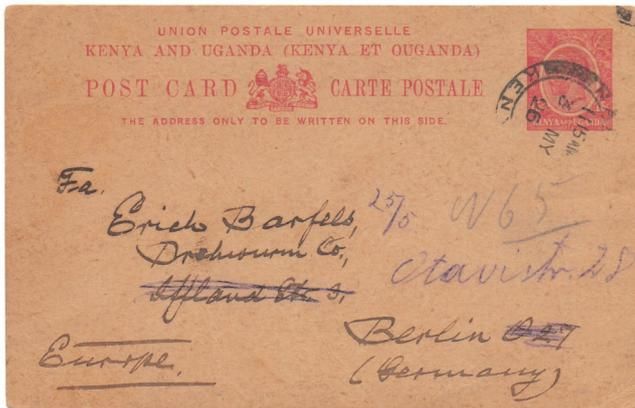 UNION POSTALE UNIVERSELLE
KENYA AND UGANDA (KENYA ET OUGANDA)
POST CARD CARTE POSTALE
THE ADDRESS ONLY TO BE WRITTEN ON THIS SIDE.
KENYA AND UGANDA
KEN
MY
26
Fa.
Erich Barfels,
25/5 W 65
Co.,
Otavistr. 28
Iffland Str. 3,
Berlin O 27
Europe.
(Germany)